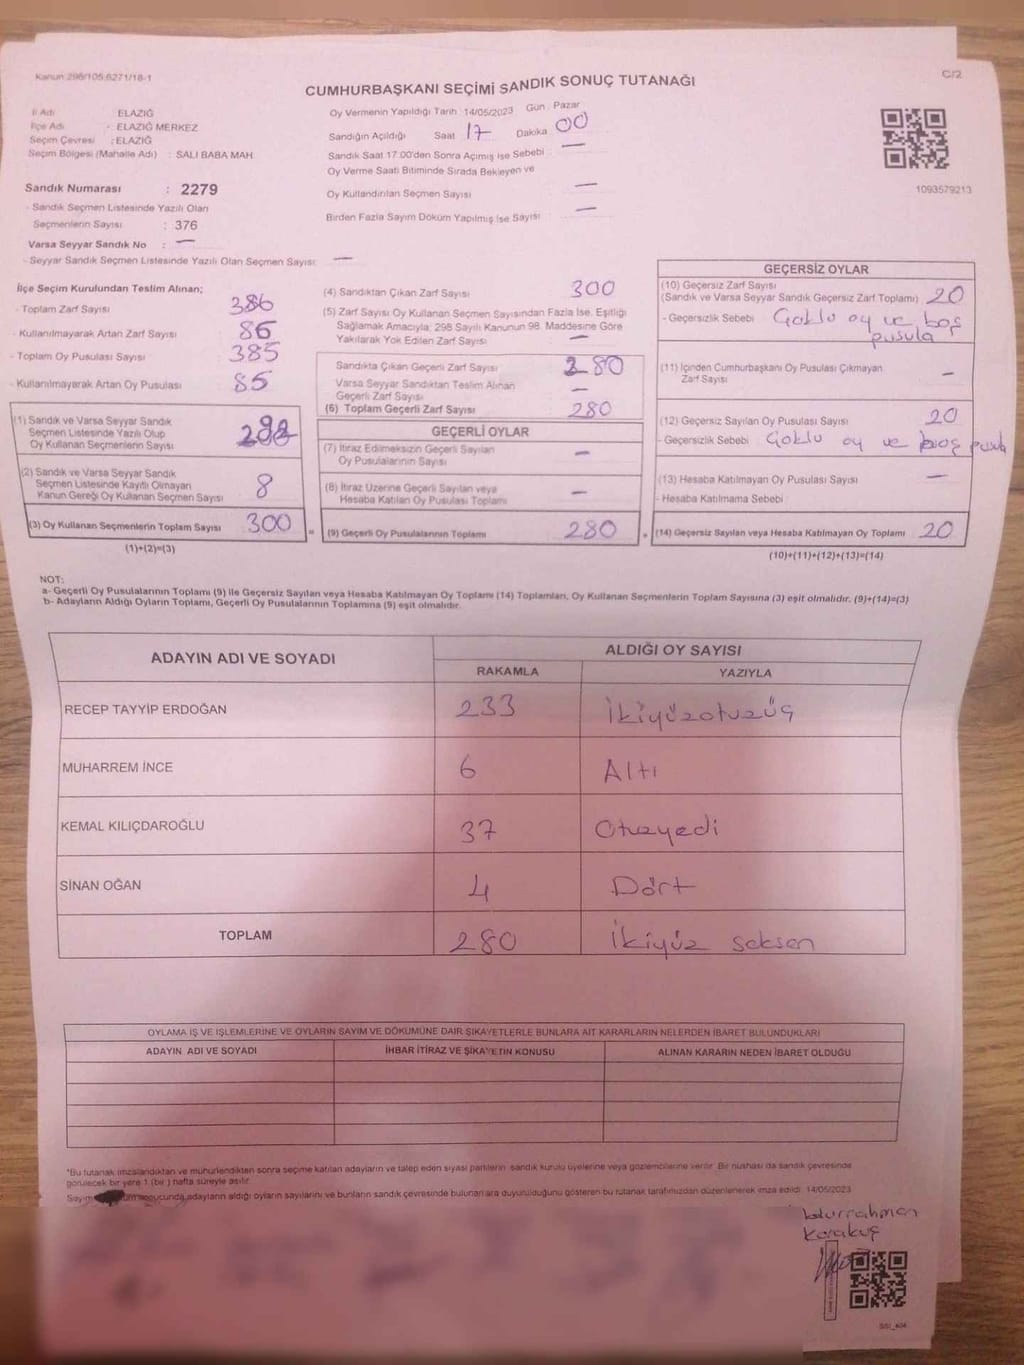 Kanun 298/105,6271/18-1
C/2
CUMHURBAŞKANI SEÇİMİ SANDIK SONUÇ TUTANAĞI
İl Adı ELAZIĞ
İlçe Adı - ELAZIĞ MERKEZ
Seçim Çevresi : ELAZIĞ
Seçim Bölgesi (Mahalle Adı) : SALI BABA MAH.
Sandık Numarası : 2279
- Sandık Seçmen Listesinde Yazılı Olan
Seçmenlerin Sayısı : 376
Varsa Seyyar Sandık No : —
- Seyyar Sandık Seçmen Listesinde Yazılı Olan Seçmen Sayısı: —
Oy Vermenin Yapıldığı Tarih : 14/05/2023 Gün : Pazar
Sandığın Açıldığı Saat 17 Dakika 00
Sandık Saat 17.00'den Sonra Açımış İse Sebebi —
Oy Verme Saati Bitiminde Sırada Bekleyen ve
Oy Kullandırılan Seçmen Sayısı —
Birden Fazla Sayım Döküm Yapılmış İse Sayısı —
1093579213
İlçe Seçim Kurulundan Teslim Alınan;
- Toplam Zarf Sayısı 386
- Kullanılmayarak Artan Zarf Sayısı 86
- Toplam Oy Pusulası Sayısı 385
- Kullanılmayarak Artan Oy Pusulası 85
(1) Sandık ve Varsa Seyyar Sandık
Seçmen Listesinde Yazılı Olup
Oy Kullanan Seçmenlerin Sayısı
(2) Sandık ve Varsa Seyyar Sandık
Seçmen Listesinde Kayıtlı Olmayan
Kanun Gereği Oy Kullanan Seçmen Sayısı 8
(3) Oy Kullanan Seçmenlerin Toplam Sayısı 300
(1)+(2)=(3)
(4) Sandıktan Çıkan Zarf Sayısı 300
(5) Zarf Sayısı Oy Kullanan Seçmen Sayısından Fazla İse, Eşitliği
Sağlamak Amacıyla; 298 Sayılı Kanunun 98. Maddesine Göre
Yakılarak Yok Edilen Zarf Sayısı —
Sandıkta Çıkan Geçerli Zarf Sayısı 280
Varsa Seyyar Sandıktan Teslim Alınan
Geçerli Zarf Sayısı —
(6) Toplam Geçerli Zarf Sayısı 280
GEÇERLİ OYLAR
(7) İtiraz Edilmeksizin Geçerli Sayılan
Oy Pusulalarının Sayısı —
(8) İtiraz Üzerine Geçerli Sayılan veya
Hesaba Katılan Oy Pusulası Toplamı —
= (9) Geçerli Oy Pusulalarının Toplamı 280
GEÇERSİZ OYLAR
(10) Geçersiz Zarf Sayısı
(Sandık ve Varsa Seyyar Sandık Geçersiz Zarf Toplamı) 20
- Geçersizlik Sebebi Çoklu oy ve boş
pusula
(11) İçinden Cumhurbaşkanı Oy Pusulası Çıkmayan
Zarf Sayısı —
(12) Geçersiz Sayılan Oy Pusulası Sayısı 20
- Geçersizlik Sebebi Çoklu oy ve boş pusula
(13) Hesaba Katılmayan Oy Pusulası Sayısı —
- Hesaba Katılmama Sebebi
+ (14) Geçersiz Sayılan veya Hesaba Katılmayan Oy Toplamı 20
(10)+(11)+(12)+(13)=(14)
NOT:
a- Geçerli Oy Pusulalarının Toplamı (9) ile Geçersiz Sayılan veya Hesaba Katılmayan Oy Toplamı (14) Toplamları, Oy Kullanan Seçmenlerin Toplam Sayısına (3) eşit olmalıdır. (9)+(14)=(3)
b- Adayların Aldığı Oyların Toplamı, Geçerli Oy Pusulalarının Toplamına (9) eşit olmalıdır.
ADAYIN ADI VE SOYADI ALDIĞI OY SAYISI
RAKAMLA YAZIYLA
RECEP TAYYİP ERDOĞAN 233 İkiyüzotuzüç
MUHARREM İNCE 6 Altı
KEMAL KILIÇDAROĞLU 37 Otuzyedi
SİNAN OĞAN 4 Dört
TOPLAM 280 İkiyüz seksen
OYLAMA İŞ VE İŞLEMLERİNE VE OYLARIN SAYIM VE DÖKÜMÜNE DAİR ŞİKAYETLERLE BUNLARA AİT KARARLARIN NELERDEN İBARET BULUNDUKLARI
ADAYIN ADI VE SOYADI İHBAR İTİRAZ VE ŞİKAYETİN KONUSU ALINAN KARARIN NEDEN İBARET OLDUĞU
*Bu tutanak imzalandıktan ve mühürlendikten sonra seçime katılan adayların ve talep eden siyasi partilerin sandık kurulu üyelerine veya gözlemcilerine verilir. Bir nüshası da sandık çevresinde
görülecek bir yere 1 (bir) hafta süreyle asılır.
Sayım sonucunda adayların aldığı oyların sayılarını ve bunların sandık çevresinde bulunanlara duyurulduğunu gösteren bu tutanak tarafımızdan düzenlenerek imza edildi. 14/05/2023
Karakuş